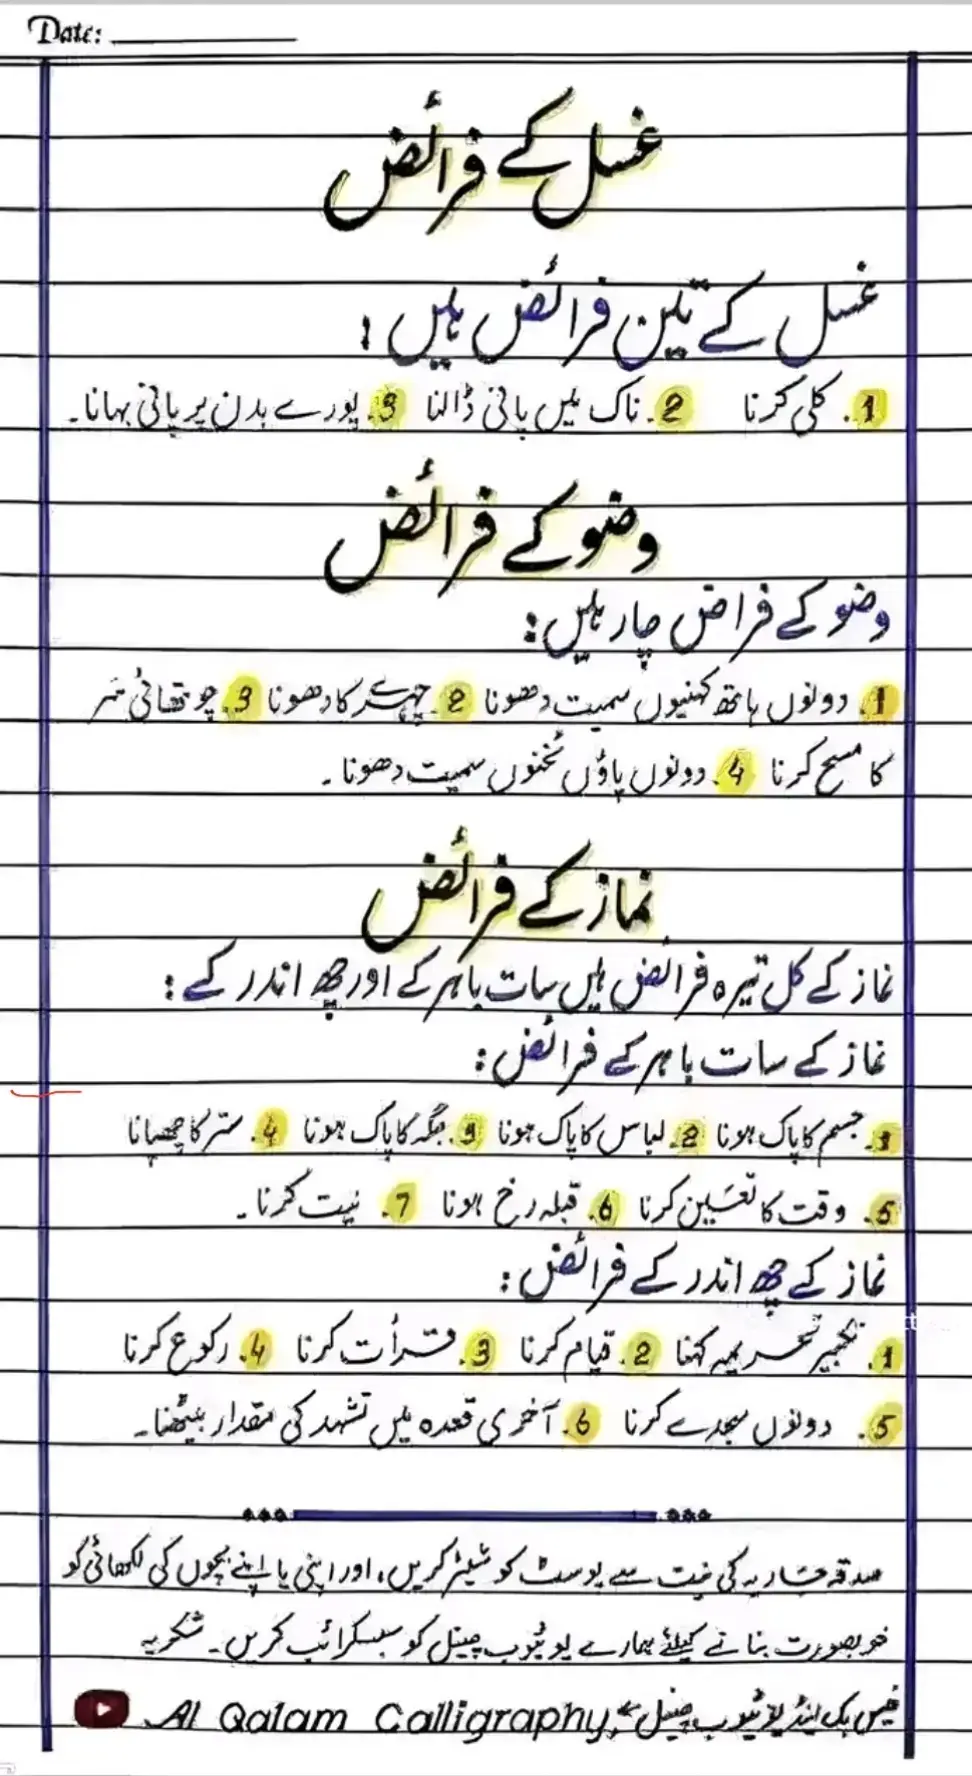 Date:
غسل کے فرائض
غسل کے تین فرائض ہیں :
1. کلی کرنا 2. ناک میں پانی ڈالنا 3. پورے بدن پر پانی بہانا۔
وضو کے فرائض
وضو کے فراض چار ہیں:
1. دونوں ہاتھ کہنیوں سمیت دھونا 2. چہرے کا دھونا 3. چوتھائی سَر
کا مسح کرنا 4. دونوں پاؤں ٹخنوں سمیت دھونا ۔
نماز کے فرائض
نماز کے کل تیرہ فرائض ہیں سات باہر کے اور چھ اندر کے :
نماز کے سات باہر کے فرائض :
1. جسم کا پاک ہونا 2. لباس کا پاک ہونا 3. جگہ کا پاک ہونا 4. ستر کا چھپانا
5. وقت کا تعین کرنا 6. قبلہ رخ ہونا 7. نیت کرنا ۔
نماز کے چھ اندر کے فرائض :
1. تکبیر تحریمہ کہنا 2. قیام کرنا 3. قرأت کرنا 4. رکوع کرنا
5. دونوں سجدے کرنا 6. آخری قعدہ میں تشہد کی مقدار بیٹھنا۔
صدقہ جاریہ کی نیت سے پوسٹ کو شیئر کریں، اور اپنی یا اپنے بچوں کی لکھائی کو
خوبصورت بنانے کیلئے ہمارے یوٹیوب چینل کو سبسکرائب کریں۔ شکریہ
فیس بک اینڈ یوٹیوب چینل Al Qalam Calligraphy